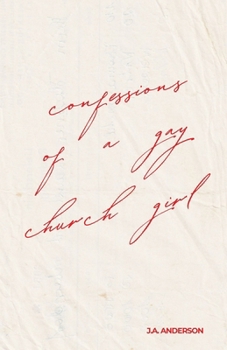 confessions
of a gay
church girl
J.A. ANDERSON